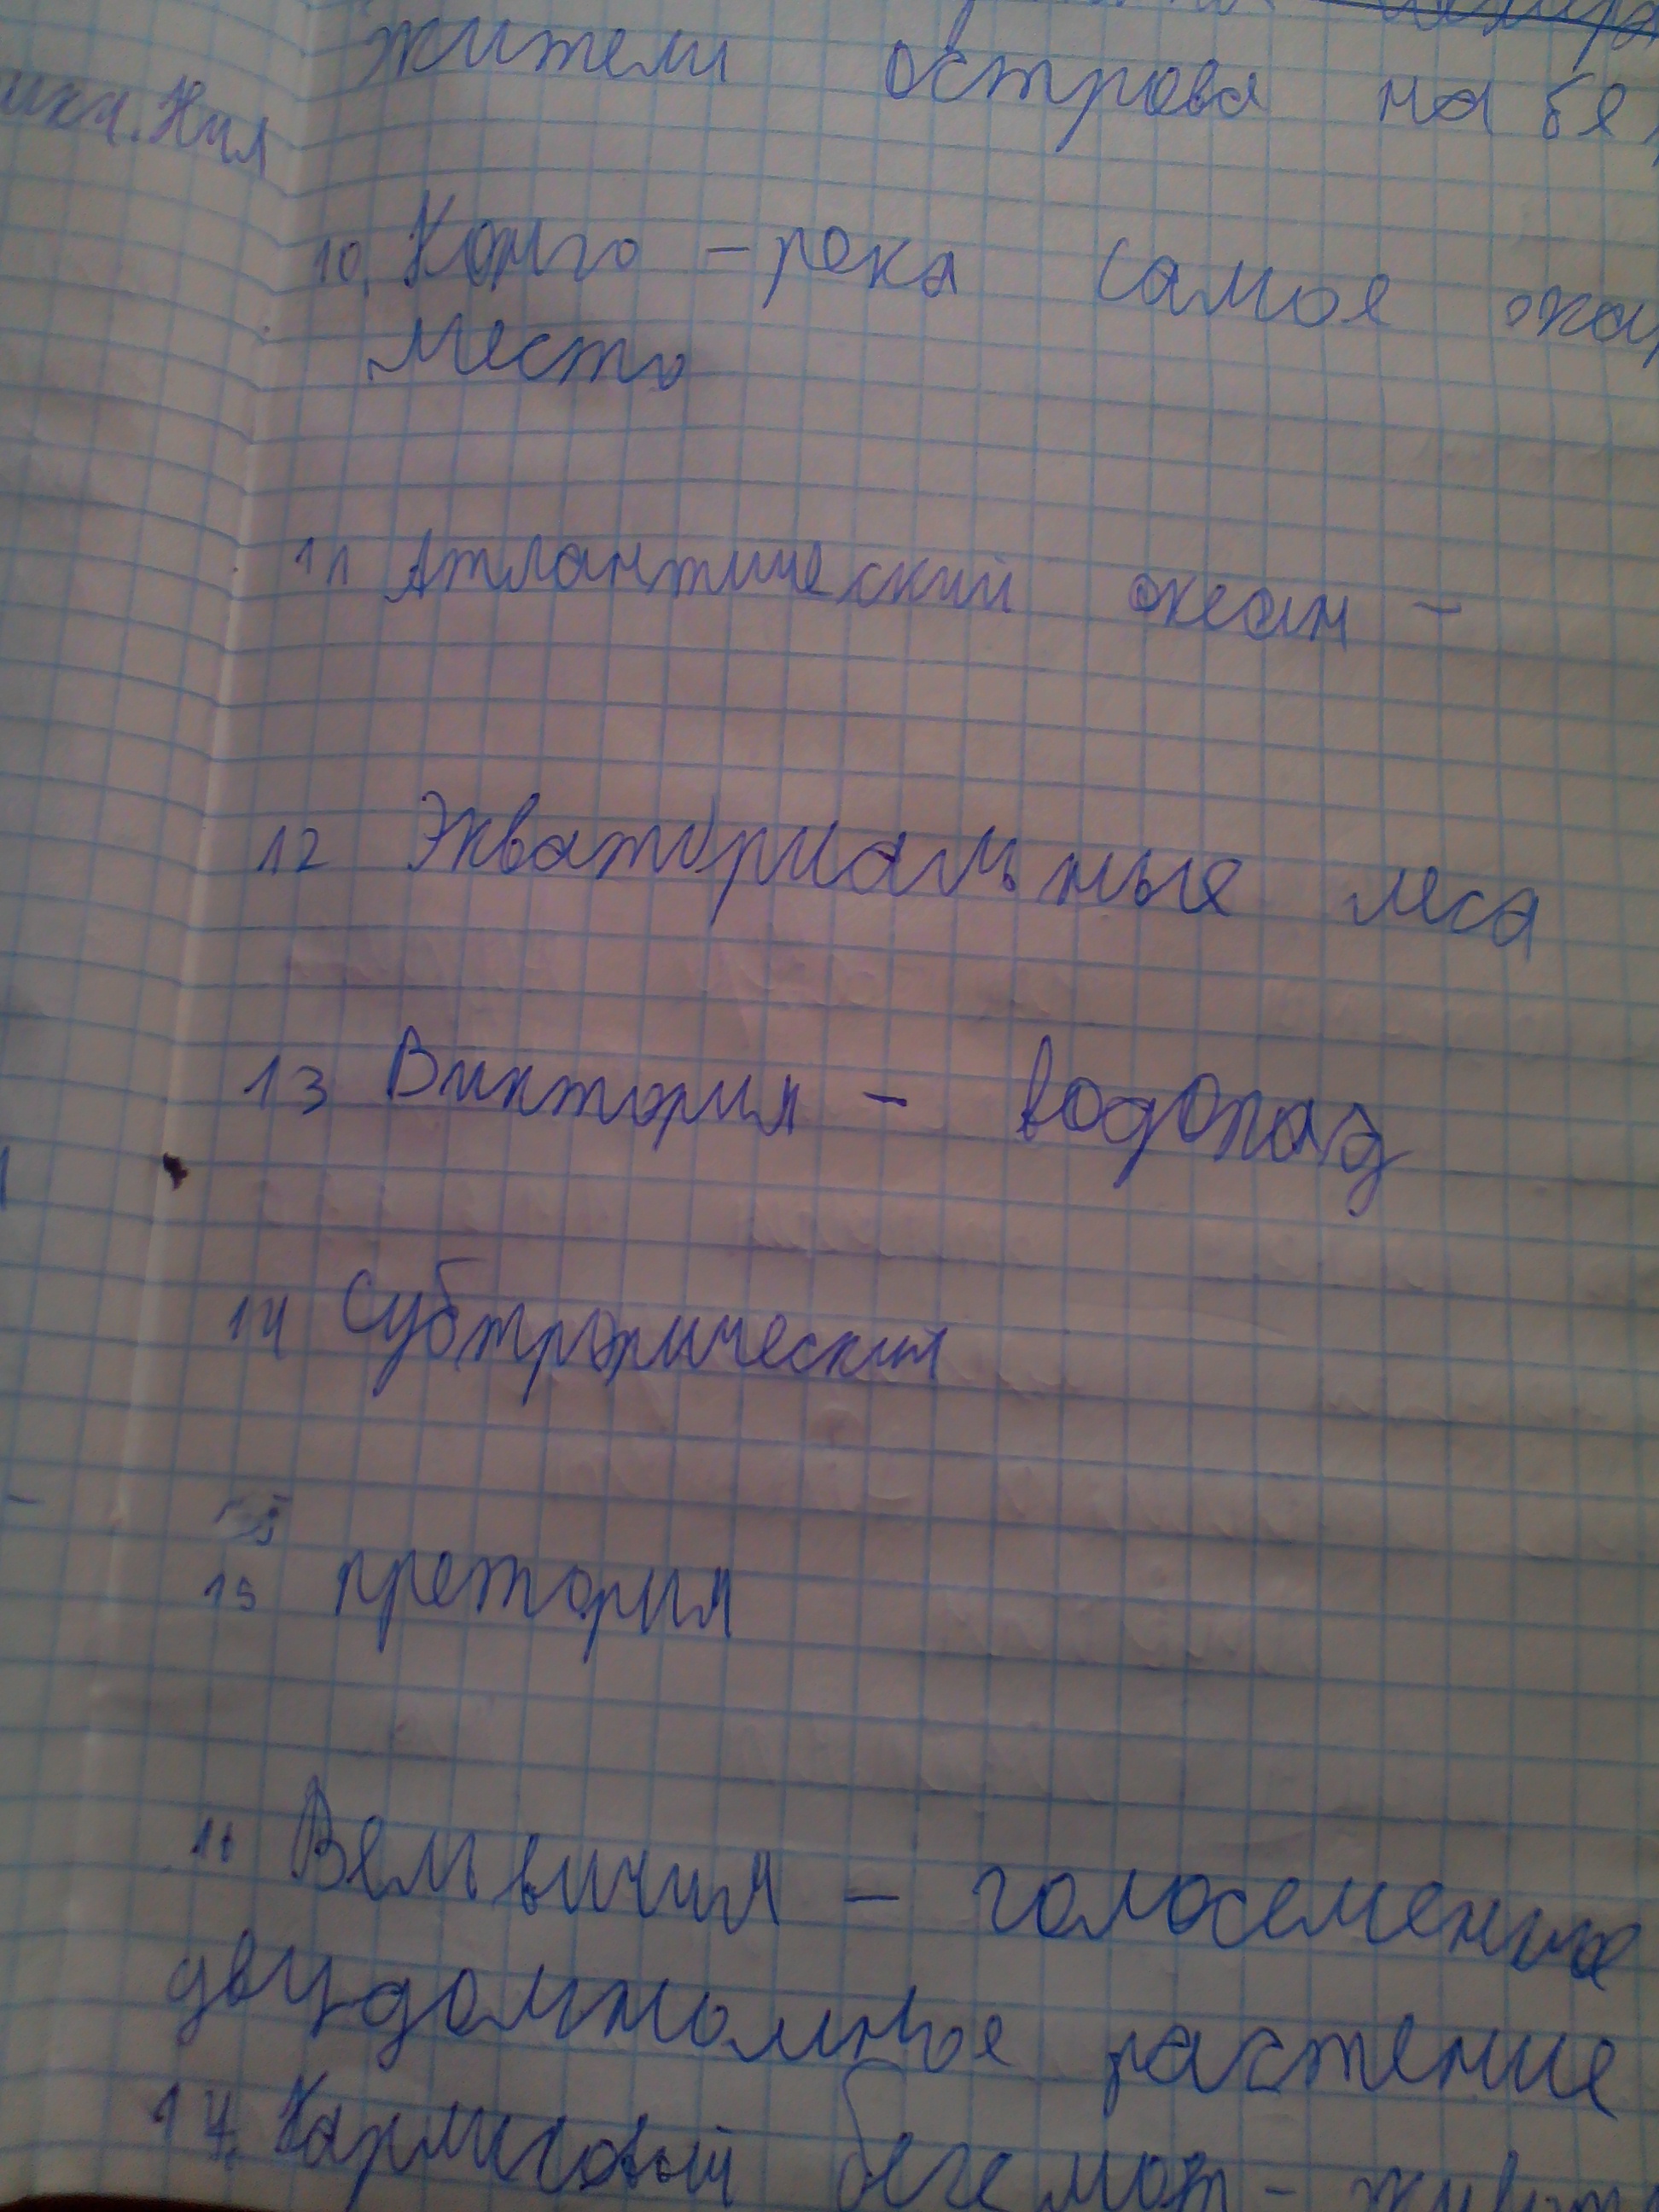 жители острова на бе
10. Конго - река самое
место
11 Атлантический океан -
12 Экваториальные леса
13 Виктория - водопад
14 Субтропический
15 претория
Вельвичия - голосеменное
растение
17. Карликовый бегемот -